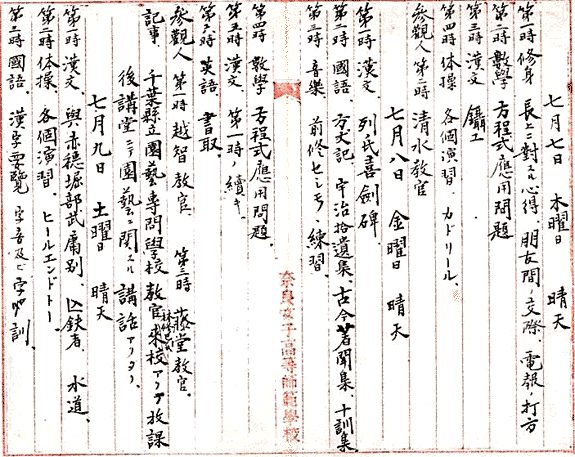 七月七日 木曜日 晴天
第一時 修身 長上ニ對スル心得、朋友間ノ交際、電報ノ打方
第二時 數學 方程式應用問題
第三時 漢文 鑷工
第四時 体操 各個演習、カドリール、
參觀人 第二時 清水教官
七月八日 金曜日 晴天
第一時 漢文 列氏喜劍碑
第二時 國語、方丈記、宇治拾遺集、古今著聞集、十訓集、
第三時 音樂 前修セシモノ、練習、
奈良女子高等師範學校
第四時 數學 方程式應用問題、
第五時 漢文、第一時ノ續キ、
第六時 英語 書取、
參觀人 第一時 越智教官 第三時 藤堂教官、
記事 千葉縣立園藝專門學校教官 來校アリテ放課
後講堂ニテ園藝ニ関スル講話アリタリ、
七月九日 土曜日 晴天
第一時 漢文、與赤穗堀部武庸別、亡鉄者、水道、
第二時 体操 各個演習、ヒールエンドトー
第三時 國語 漢字要覧 字音及ビ字訓、